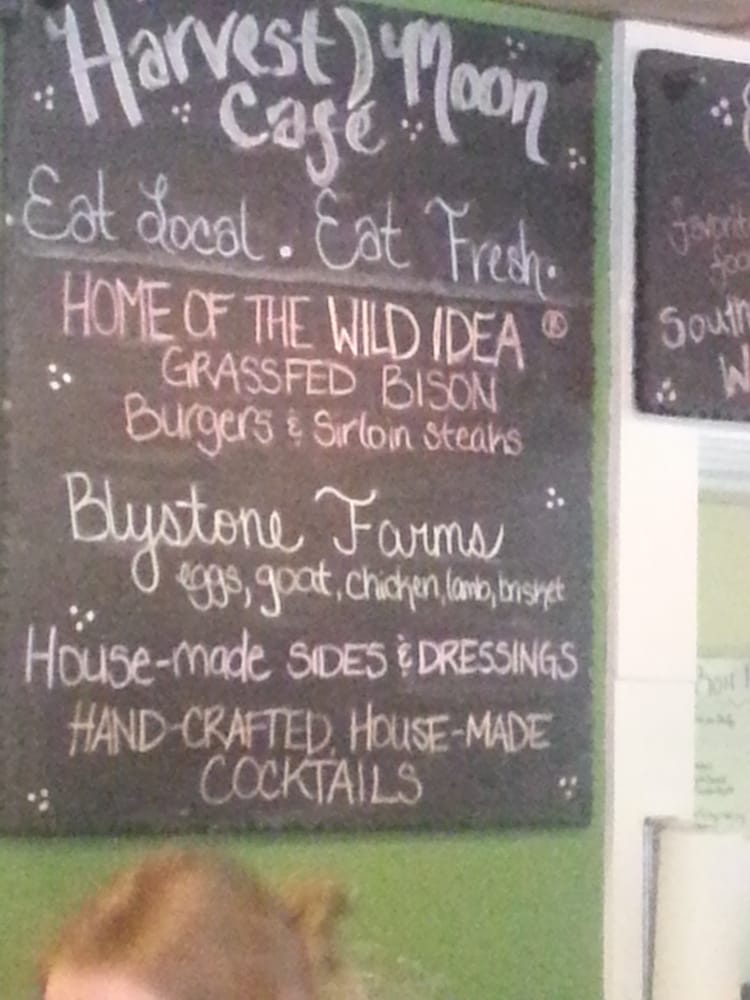 Harvest Moon
Café
Eat Local. Eat Fresh.
HOME OF THE WILD IDEA ®
GRASSFED BISON
Burgers & Sirloin Steaks
Blystone Farms
eggs, goat, chicken, lamb, brisket
House-made SIDES & DRESSINGS
HAND-CRAFTED, HOUSE-MADE
COCKTAILS